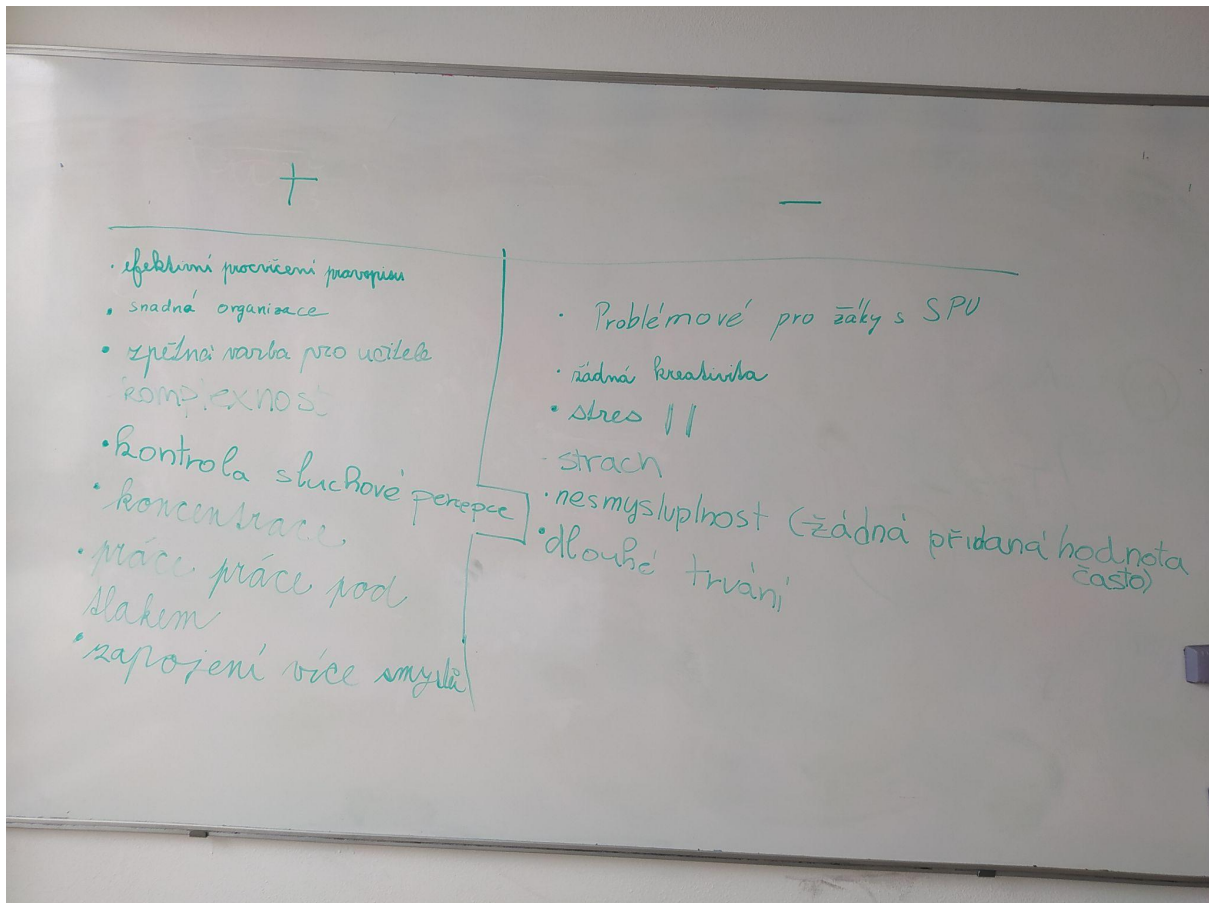 +
· efektivní procvičení pravopisu
· snadná organizace
· zpětná vazba pro učitele
komplexnost
· kontrola sluchové percepce
· koncentrace
· práce práce pod
tlakem
· zapojení více smyslů
−
· Problémové pro žáky s SPU
· žádná kreativita
· stres ||
- strach
· nesmysluplnost (žádná přidaná hodnota
často)
· dlouhé trvání